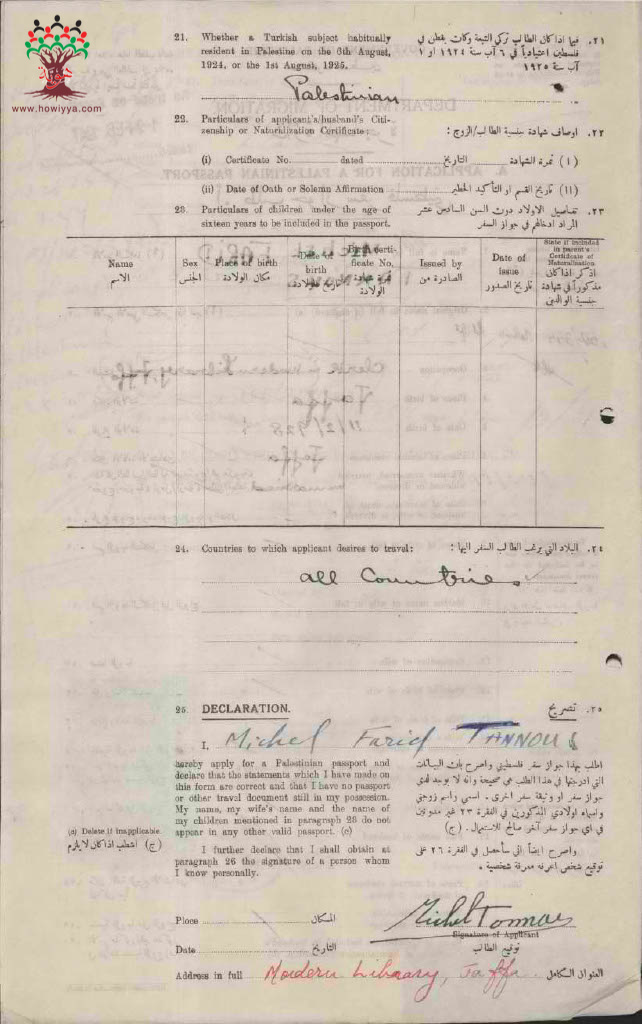 www.howiyya.com
21. Whether a Turkish subject habitually
resident in Palestine on the 6th August,
1924, or the 1st August, 1925.
٢١. فيما اذا كان الطالب تركي التبعة وكان يقطن في
فلسطين اعتيادياً في ٦ آب سنة ١٩٢٤ او ١
آب سنة ١٩٢٥
Palestinian
22. Particulars of applicant's/husband's Citi-
zenship or Naturalization Certificate:
٢٢. اوصاف شهادة جنسية الطالب/الزوج:
(i) Certificate No. dated التاريخ (١) نمرة الشهادة
(ii) Date of Oath or Solemn Affirmation (١١) تاريخ القسم او التأكيد الخطير
23. Particulars of children under the age of
sixteen years to be included in the passport.
٢٣. تفاصيل الاولاد دون السن السادس عشر
المراد ادخالهم في جواز السفر
Name
الاسم
Sex
الجنس
Place of birth
مكان الولادة
Date of
birth
تاريخ الولادة
Birth certi-
ficate No.
نمرة شهادة
الولادة
Issued by
الصادرة من
Date of
issue
تاريخ الصدور
State if included
in parent's
Certificate of
Naturalization
اذكر اذا كان
مذكوراً في شهادة
جنسية الوالدين
24. Countries to which applicant desires to travel:
٢٤. البلاد التي يرغب الطالب السفر اليها:
all Countries
25. DECLARATION.
٢٥. تصريح
I, Michel Farid TANNOUS
hereby apply for a Palestinian passport and
declare that the statements which I have made on
this form are correct and that I have no passport
or other travel document still in my possession.
My name, my wife's name and the name of
my children mentioned in paragraph 23 do not
appear in any other valid passport. (c)
اطلب بهذا جواز سفر فلسطيني واصرح بان البيانات
التي ادرجتها في هذا الطلب هي صحيحة وانه لا يوجد لدي
جواز سفر او وثيقة سفر اخرى. اسمي واسم زوجتي
واسماء اولادي المذكورين في الفقرة ٢٣ غير مدونين
في اي جواز سفر آخر صالح للاستعمال. (ج)
(c) Delete if inapplicable
(ج) اشطب اذا كان لا يلزم
I further declare that I shall obtain at
paragraph 26 the signature of a person whom
I know personally.
واصرح ايضاً اني سأحصل في الفقرة ٢٦ على
توقيع شخص اعرفه معرفة شخصية.
Place المكان
Michel Tannous
Signature of Applicant
توقيع الطالب
Date التاريخ
Address in full Modern Library, Jaffa. العنوان الكامل